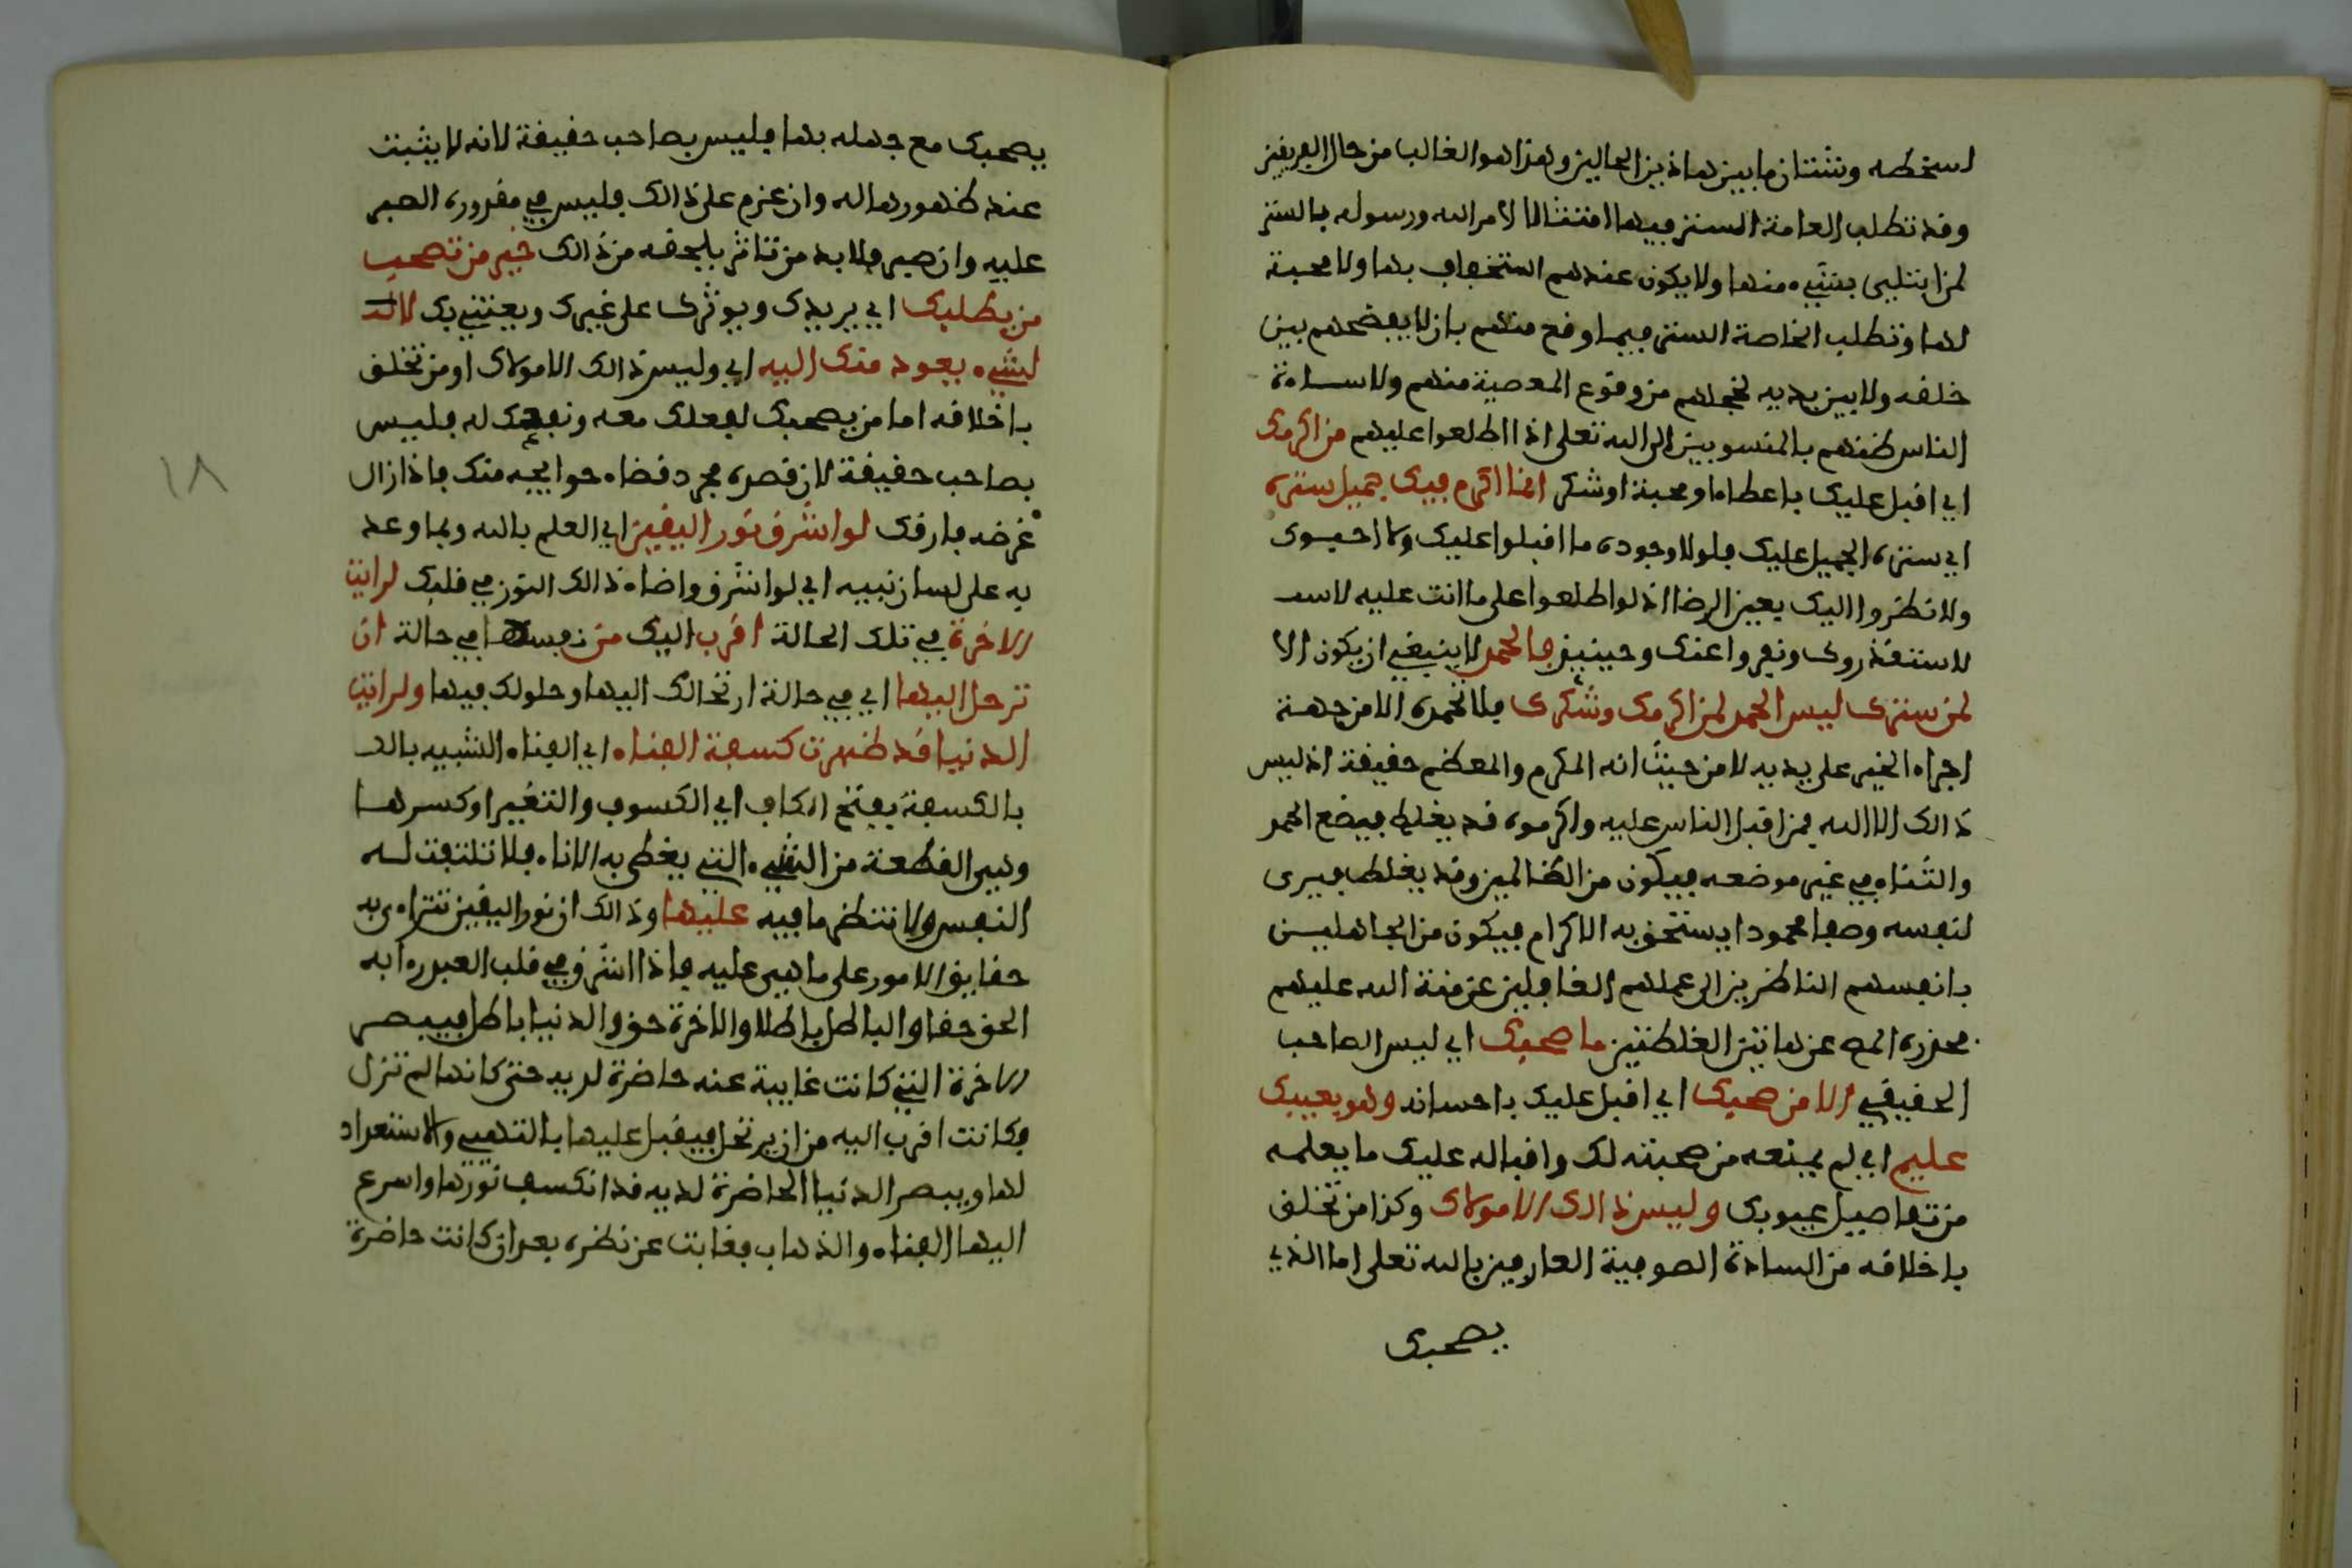 استخطه وشتان ما بين هاذين الحالين وهذا هو الغالب من حال العريفين
وقد تطلب العامة الستر فيها امتثالا لامر الله ورسوله بالستر
لمن ابتلي بشيء منها ولا يكون عندهم استخفاف بها ولا محبة
لها وتطلب الخاصة الستر فيما وقع منهم بان لا يفضحهم بين
خلفه ولا بين يديه لخجلهم من وقوع المعصية منهم ولاساءة
الناس ظنهم بالمنسوبين الى الله تعلى اذا اطلعوا عليهم من اكرمك
اي اقبل عليك باعطاء او محبة او شكر انما اكرم فيك جميل ستره
اي ستره الجميل عليك فلولا وجوده ما اقبلوا عليك ولا احبوك
ولا نظروا اليك بعين الرضا اذ لو اطلعوا على ما انت عليه لاسد
لاستقذروك ونفروا عنك وحينيذ فالحمد لا ينبغي ان يكون الا
لمن سترك ليس الحمد لمن اكرمك وشكرك فلا تحمده الا من جهة
اجراء الخير على يديه لا من حيث انه المكرم والمعظم حقيقة اذ ليس
ذالك الا الله فمن اقبل الناس عليه واكرموه قد يغلط فيضع الحمد
والثناء في غير موضعه فيكون من الظالمين وقد يغلط فيرى
لنفسه وصفا محمودا يستحق به الاكرام فيكون من الجاهليـن
بانفسهم الناظرين الى عملهم الغافلين عن منة الله عليهم
فحذره المص عن هاتين الغلطتين ما صحبك اي ليس الصاحب
الحقيقي الا من صحبك اي اقبل عليك باحسانه وهو بعيبك
عليم اي لم يمنعه من صحبته لك واقباله عليك ما يعلمه
من تفاصيل عيوبك وليس ذالك الا مولاك وكذا من تخلق
باخلاقه من السادة الصوفية العارفين بالله تعلى اما الذي
يصحبك
يصحبك مع جهله بها فليس بصاحب حقيقة لانه لا يثبت
عند ظهورها له وان عزم على ذالك فليس في مقدوره الصبر
عليه وان صبر فلا بد من تاثر يلحقه من ذالك خير من تصحب
من يطلبك اي يريدك ويوثرك على غيرك ويعتني بك لا لـ
لشيء يعود منك اليه اي وليس ذالك الا مولاك او من تخلق
باخلاقه اما من يصحبك لفعلك معه ونفعك له فليس
بصاحب حقيقة لان قصده مجرد قضاء حوايجه منك فاذا زال
غرضه فارقك لو اشرق نور اليقين اي العلم بالله وبما وعد
به على لسان نبيه اي لو اشرق واضاء ذالك النور في قلبك لرايت
الاخرة في تلك الحالة اقرب اليك من نفسها في حالة ان
ترحل اليها اي في حالة ارتحالك اليها وحلولك فيها ولرايت
الدنيا قد ظهرت كسفة الفناء اي الفناء الشبيه بالكـ
بالكسفة بفتح الكاف اي الكسوف والتغير او كسرها
وهي القطعة من الشيء التي يغطى به الاناء فلا تلتفت له
النفس ولا تنظر ما فيه عليها وذالك ان نور اليقين تتراءى به
حقايق الامور على ما هي عليه فاذا اشرق في قلب العبد رءا به
الحق حقا والباطل باطلا والاخرة حق والدنيا باطل فيبصر
الاخرة التي كانت غايبة عنه حاضرة لديه حتى كانها لم تزل
فكانت اقرب اليه من ان يرتحل فيقبل عليها بالتهيي والاستعداد
لها ويبصر الدنيا الحاضرة لديه قد انكسف نورها واسرع
اليها الفناء والذهاب فغابت عن نظره بعد ان كانت حاضرة
١٨